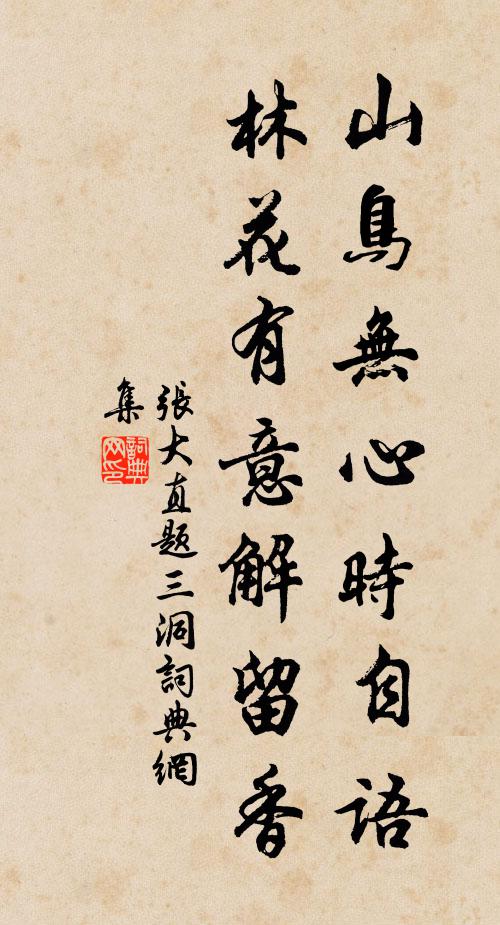 山鳥無心時自語
林花有意解留香
張大直題三洞詞典網
集
詞典網印